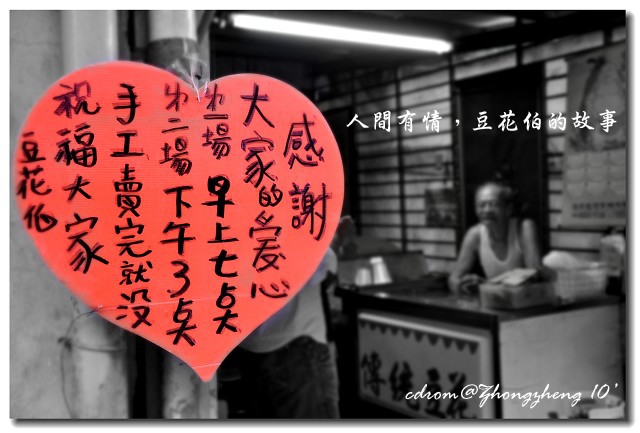 感謝
大家的愛心
㐧一場 早上七奌
㐧二場 下午3奌
手工賣完就没
祝福大家
豆花伯
人間有情，豆花伯的故事
傳統豆花
cdrom@Zhongzheng 10'